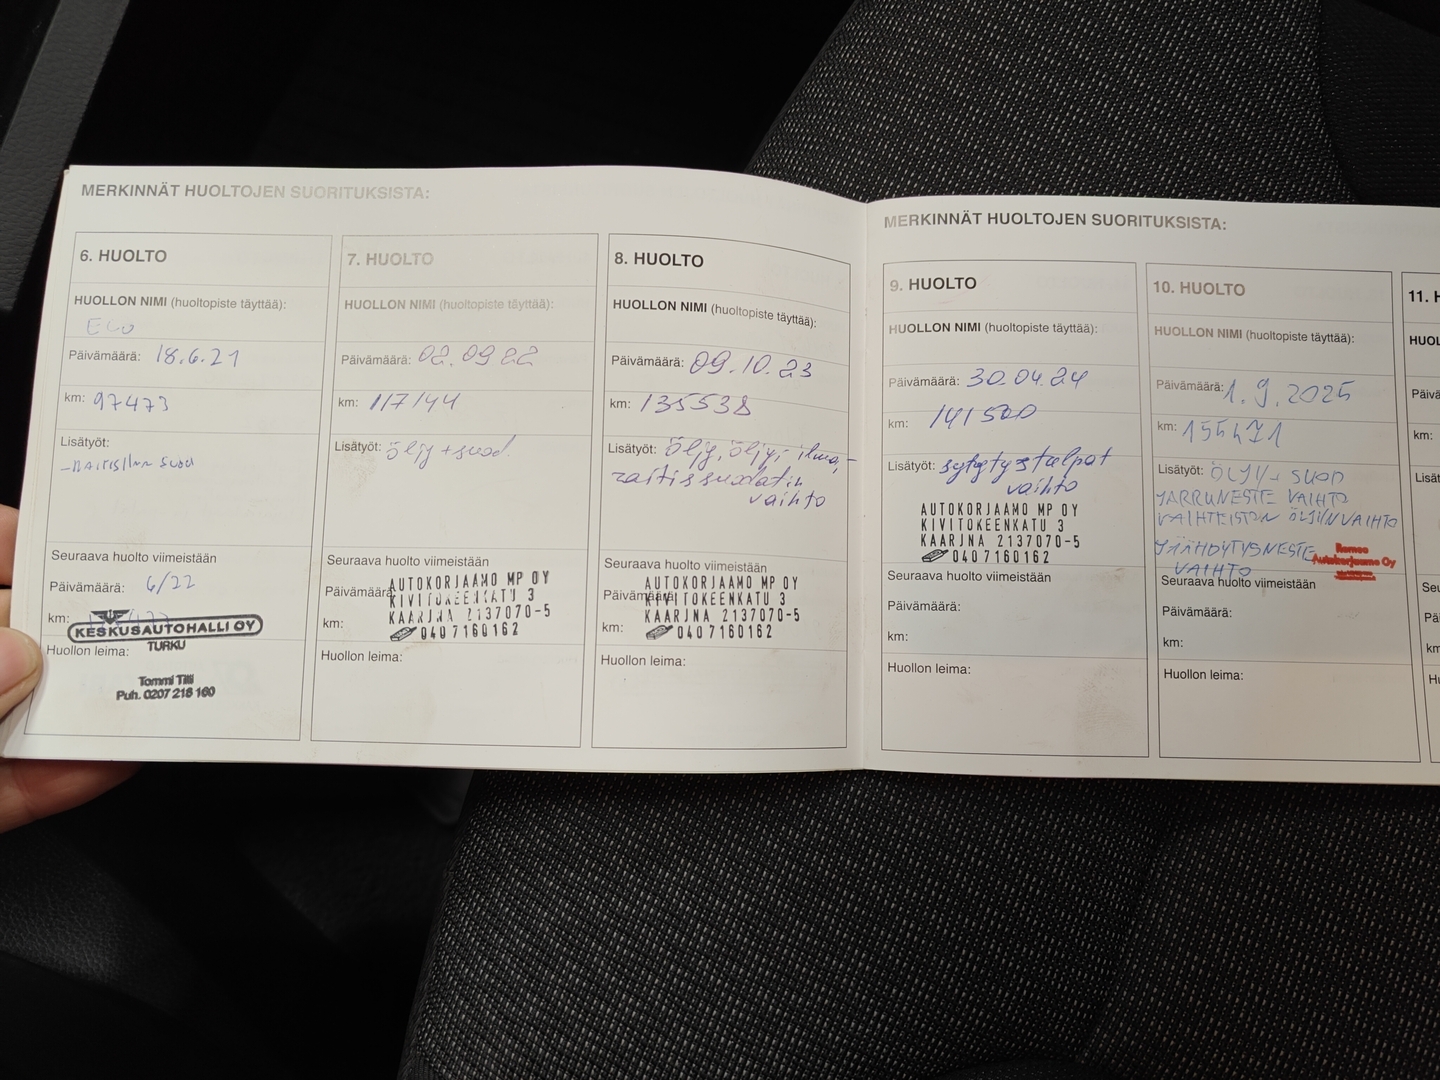 MERKINNÄT HUOLTOJEN SUORITUKSISTA:
6. HUOLTO
HUOLLON NIMI (huoltopiste täyttää):
Eco
Päivämäärä: 18.6.21
km: 97473
Lisätyöt:
Seuraava huolto viimeistään
Päivämäärä: 6/22
km:
KESKUSAUTOHALLI OY
TURKU
Huollon leima:
Tommi Tilli
Puh. 0207 218 160
7. HUOLTO
HUOLLON NIMI (huoltopiste täyttää):
Päivämäärä: 02.09 22
km: 117144
Lisätyöt: öljy + suod.
Seuraava huolto viimeistään
Päivämäärä:
AUTOKORJAAMO MP OY
KIVITOKEENKATU 3
KAARINA 2137070-5
0407160162
km:
Huollon leima:
8. HUOLTO
HUOLLON NIMI (huoltopiste täyttää):
Päivämäärä: 09.10.23
km: 135538
Lisätyöt: öljy, öljy-, ilma,-
raitissuodatin
vaihto
Seuraava huolto viimeistään
Päivämäärä:
AUTOKORJAAMO MP OY
KIVITOKEENKATU 3
KAARINA 2137070-5
0407160162
km:
Huollon leima:
MERKINNÄT HUOLTOJEN SUORITUKSISTA:
9. HUOLTO
HUOLLON NIMI (huoltopiste täyttää):
Päivämäärä: 30.04.24
km: 141500
Lisätyöt: sytytystulpat
vaihto
AUTOKORJAAMO MP OY
KIVITOKEENKATU 3
KAARINA 2137070-5
0407160162
Seuraava huolto viimeistään
Päivämäärä:
km:
Huollon leima:
10. HUOLTO
HUOLLON NIMI (huoltopiste täyttää):
Päivämäärä: 1.9.2025
km: 155471
Lisätyöt: ÖLJY+ SUOD
JARRUNESTE VAIHTO
VAIHTEISTON ÖLJYNVAIHTO
JÄÄHDYTYSNESTE
VAIHTO
Romeo
Autokorjaamo Oy
Seuraava huolto viimeistään
Päivämäärä:
km:
Huollon leima:
11. H
HUOL
Päivä
km:
Lisät
Seu
Päi
km
Hu